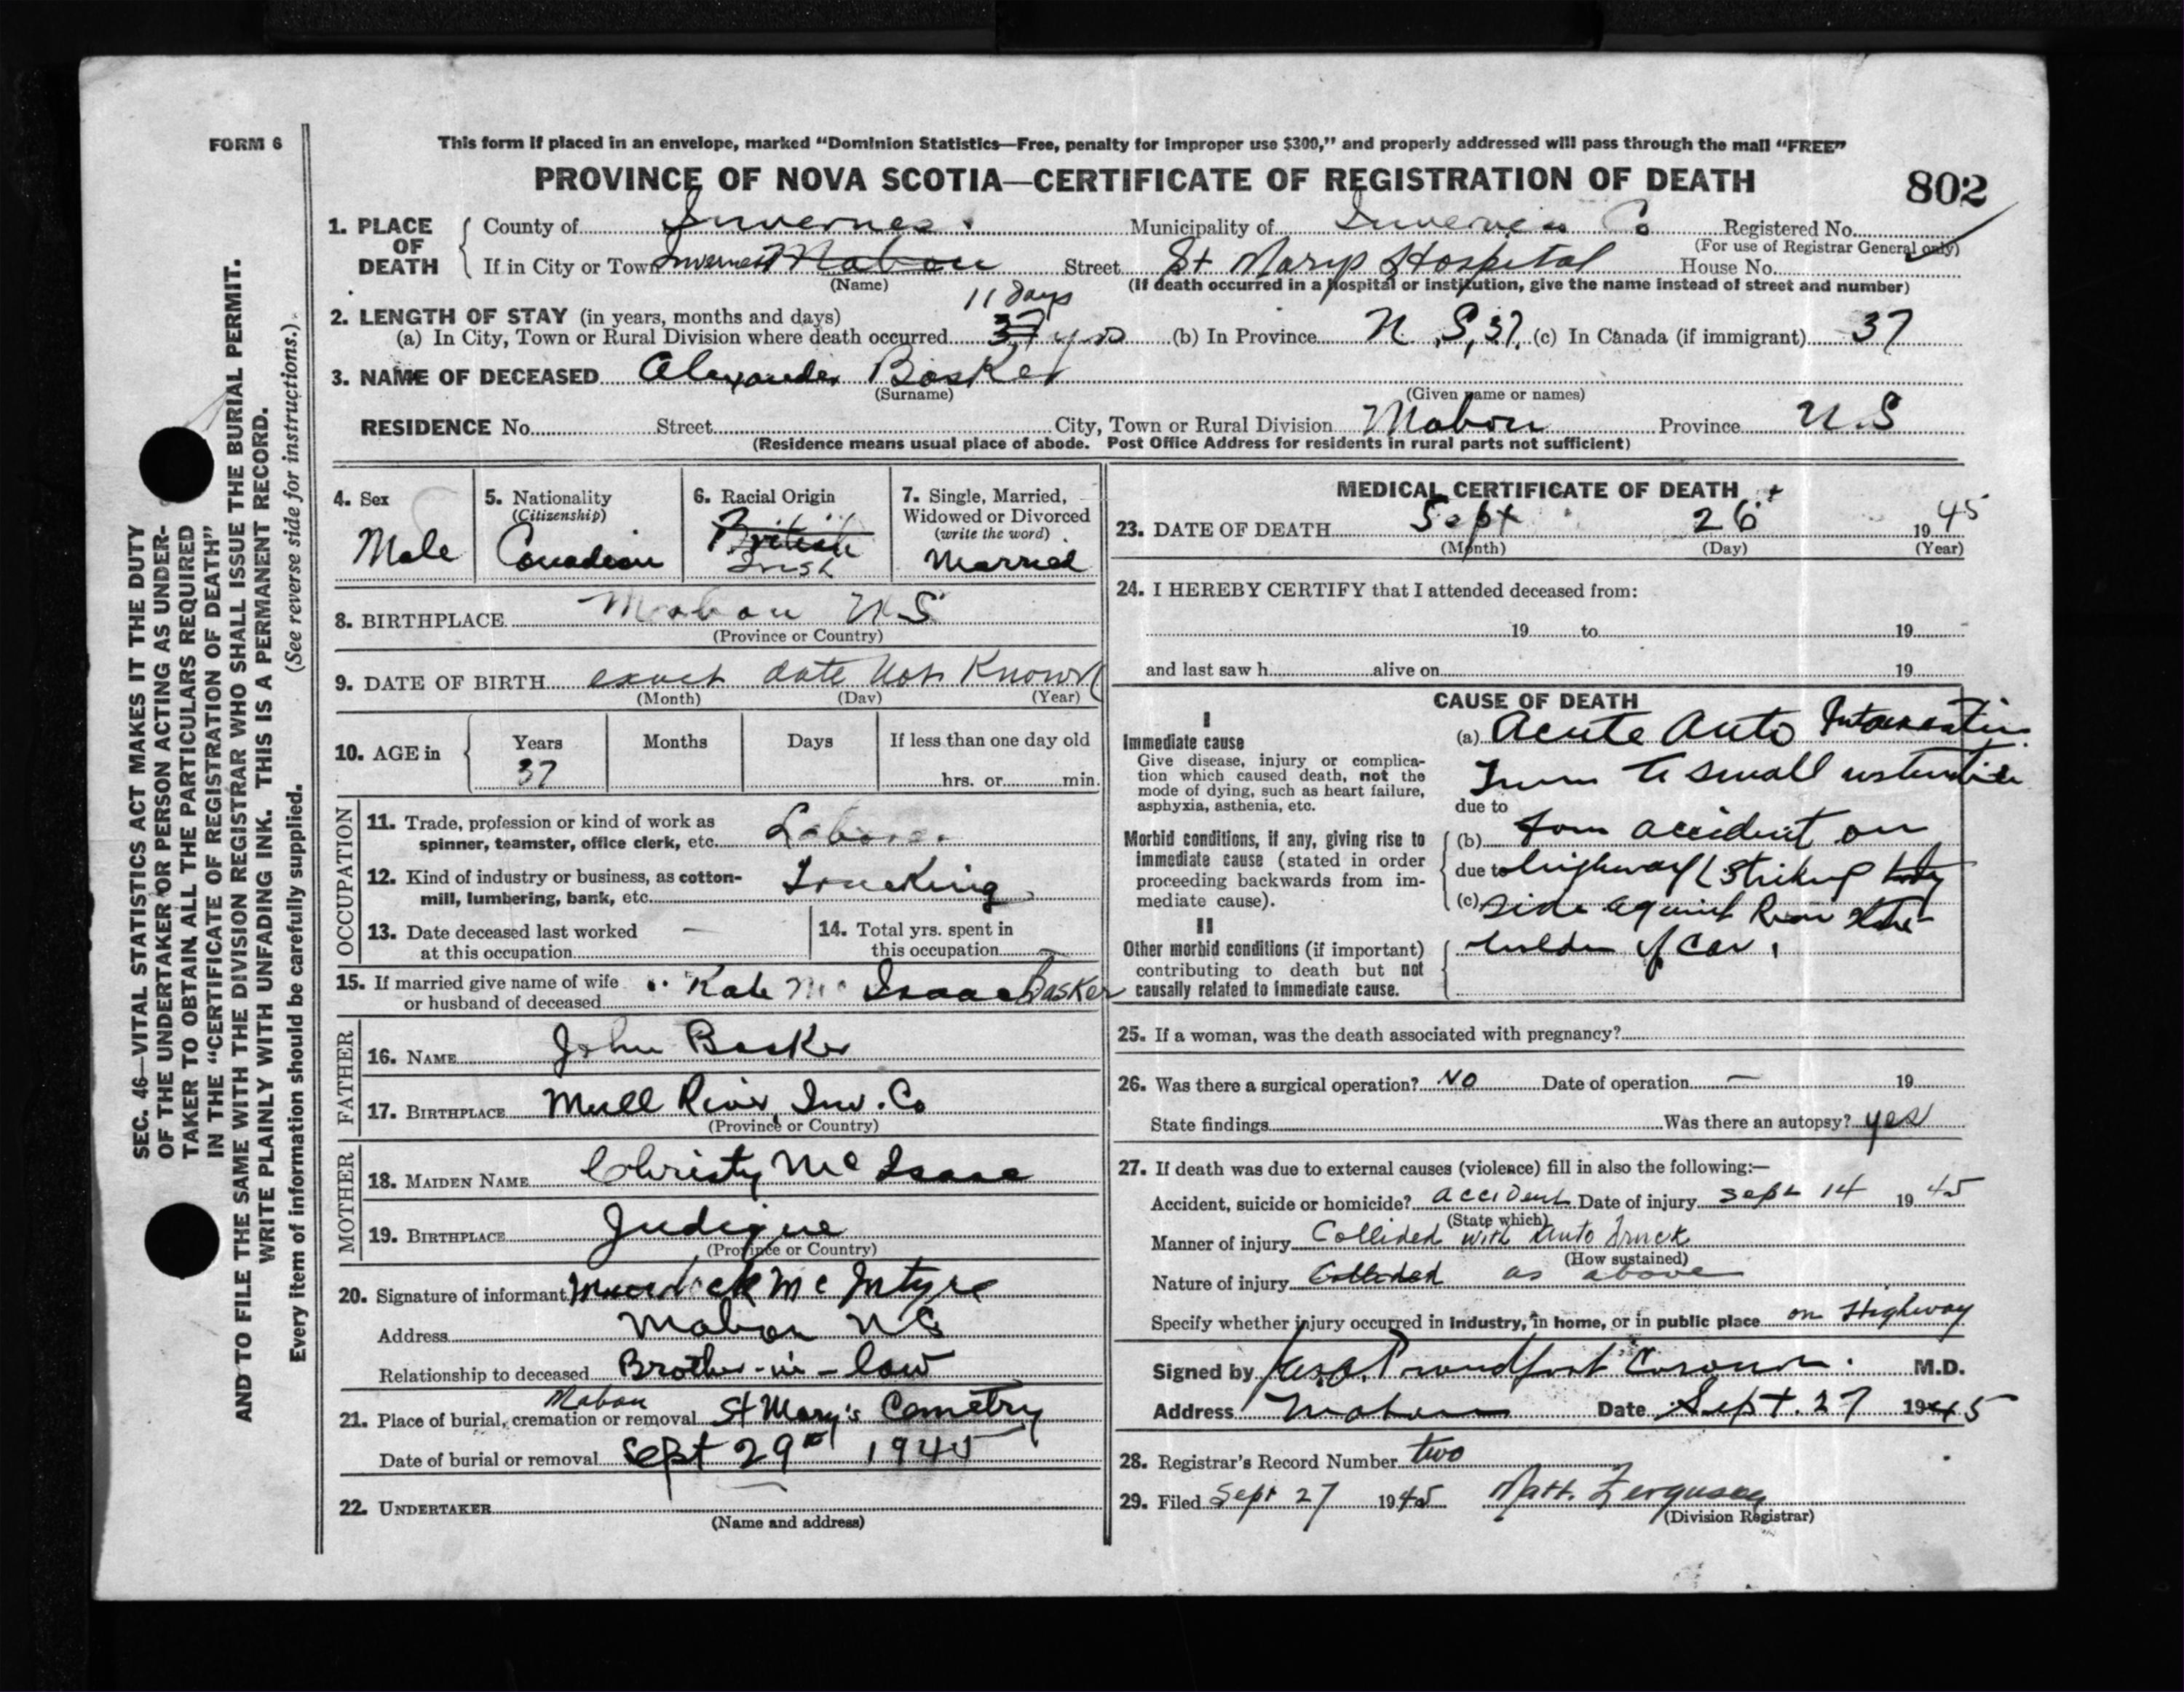 FORM 6
This form if placed in an envelope, marked "Dominion Statistics—Free, penalty for improper use $300," and properly addressed will pass through the mail "FREE"
PROVINCE OF NOVA SCOTIA—CERTIFICATE OF REGISTRATION OF DEATH
802
1. PLACE OF DEATH
County of Inverness Municipality of Inverness Co Registered No.
(For use of Registrar General only)
If in City or Town Inverness Mabou Street St Marys Hospital House No.
(Name) (If death occurred in a hospital or institution, give the name instead of street and number)
11 days
2. LENGTH OF STAY (in years, months and days)
(a) In City, Town or Rural Division where death occurred 37 yrs (b) In Province N.S, 37. (c) In Canada (if immigrant) 37
3. NAME OF DECEASED Alexander Basker
(Surname) (Given name or names)
RESIDENCE No. Street City, Town or Rural Division Mabou Province N.S
(Residence means usual place of abode. Post Office Address for residents in rural parts not sufficient)
4. Sex
Male
5. Nationality
(Citizenship)
Canadian
6. Racial Origin
British
Irish
7. Single, Married,
Widowed or Divorced
(write the word)
Married
8. BIRTHPLACE Mabou N.S
(Province or Country)
9. DATE OF BIRTH exact date Not Known
(Month) (Day) (Year)
10. AGE in
Years Months Days If less than one day old
37 hrs. or min.
OCCUPATION
11. Trade, profession or kind of work as
spinner, teamster, office clerk, etc. Laborer
12. Kind of industry or business, as cotton-
mill, lumbering, bank, etc. Trucking
13. Date deceased last worked
at this occupation —
14. Total yrs. spent in
this occupation
15. If married give name of wife
or husband of deceased Kate Mc Isaac Basker
FATHER
16. NAME John Basker
17. BIRTHPLACE Mull River, Inv. Co
(Province or Country)
MOTHER
18. MAIDEN NAME Christy Mc Isaac
19. BIRTHPLACE Judique
(Province or Country)
20. Signature of informant Murdock Mc Intyre
Address Mabou N S
Relationship to deceased Brother-in-law
Mabou
21. Place of burial, cremation or removal St Mary's Cemetry
Date of burial or removal Sept 29th 1945
22. UNDERTAKER
(Name and address)
MEDICAL CERTIFICATE OF DEATH
23. DATE OF DEATH Sept 26 1945
(Month) (Day) (Year)
24. I HEREBY CERTIFY that I attended deceased from:
19 to 19
and last saw h alive on 19
CAUSE OF DEATH
I
Immediate cause
Give disease, injury or complica-
tion which caused death, not the
mode of dying, such as heart failure,
asphyxia, asthenia, etc.
Morbid conditions, if any, giving rise to
immediate cause (stated in order
proceeding backwards from im-
mediate cause).
II
Other morbid conditions (if important)
contributing to death but not
causally related to immediate cause.
(a) Acute Auto
small
due to
(b) from accident on
due to highway (striking
(c) side against
holder of car.
25. If a woman, was the death associated with pregnancy?
26. Was there a surgical operation? NO Date of operation — 19
State findings Was there an autopsy? yes
27. If death was due to external causes (violence) fill in also the following:—
Accident, suicide or homicide? accident Date of injury Sept 14 1945
(State which)
Manner of injury Collided with Auto Truck
(How sustained)
Nature of injury Collided as above
Specify whether injury occurred in industry, in home, or in public place on Highway
Signed by Jas. A. Proudfoot Coroner. M.D.
Address Mabou Date Sept. 27 1945
28. Registrar's Record Number two
29. Filed Sept 27 1945 Matt. Ferguson
(Division Registrar)
SEC. 46—VITAL STATISTICS ACT MAKES IT THE DUTY
OF THE UNDERTAKER OR PERSON ACTING AS UNDER-
TAKER TO OBTAIN ALL THE PARTICULARS REQUIRED
IN THE "CERTIFICATE OF REGISTRATION OF DEATH"
AND TO FILE THE SAME WITH THE DIVISION REGISTRAR WHO SHALL ISSUE THE BURIAL PERMIT.
WRITE PLAINLY WITH UNFADING INK. THIS IS A PERMANENT RECORD.
Every item of information should be carefully supplied. (See reverse side for instructions.)